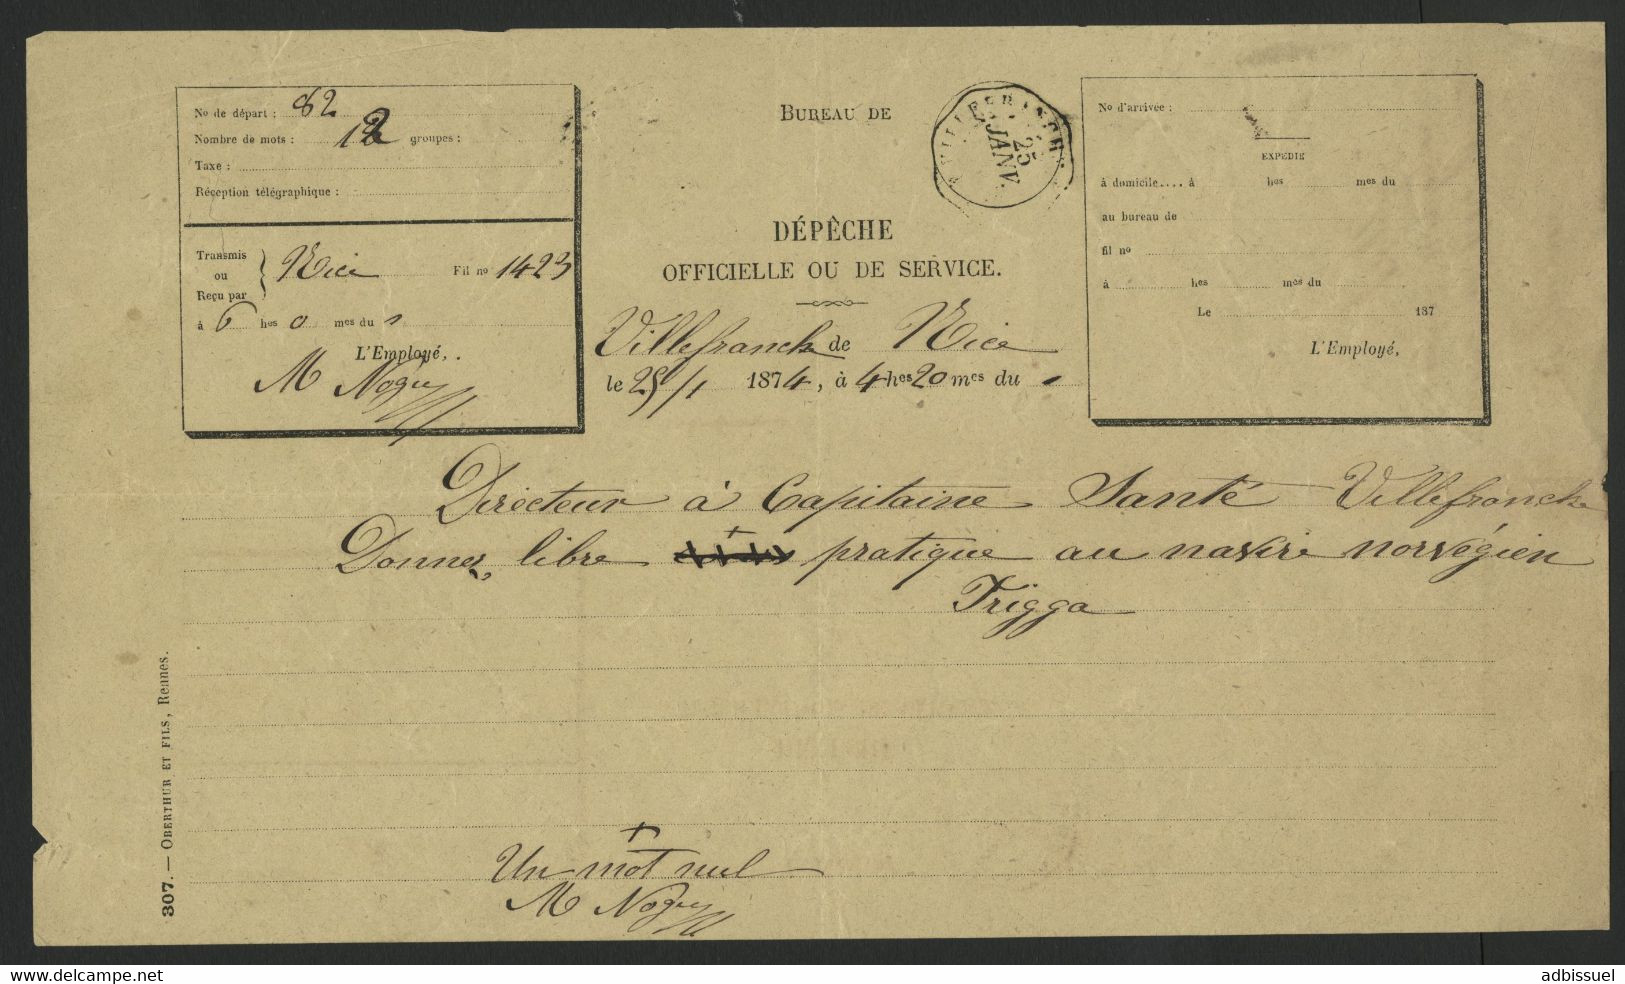 No de départ : 82
Nombre de mots : 12 groupes :
Taxe :
Réception télégraphique :
Transmis ou Reçu par } Nice Fil no 1423
à 6 hes 0 mes du s
L'Employé,.
M Noguy
BUREAU DE
VILLEFRANCHE
25
JANV.
DÉPÊCHE
OFFICIELLE OU DE SERVICE.
Villefranche de Nice
le 25/1 1874, à 4 hes 20 mes du s
No d'arrivée :
EXPÉDIÉ
à domicile.... à hes mes du
au bureau de
fil no
à hes mes du
Le 187
L'Employé,
Directeur à Capitaine Santé Villefranche
Donnez libre pratique au navire norvégien
Trigga
Un mot nul
M Noguy
307. — OBERTHUR ET FILS, Rennes.
www.delcampe.net
adbissuel